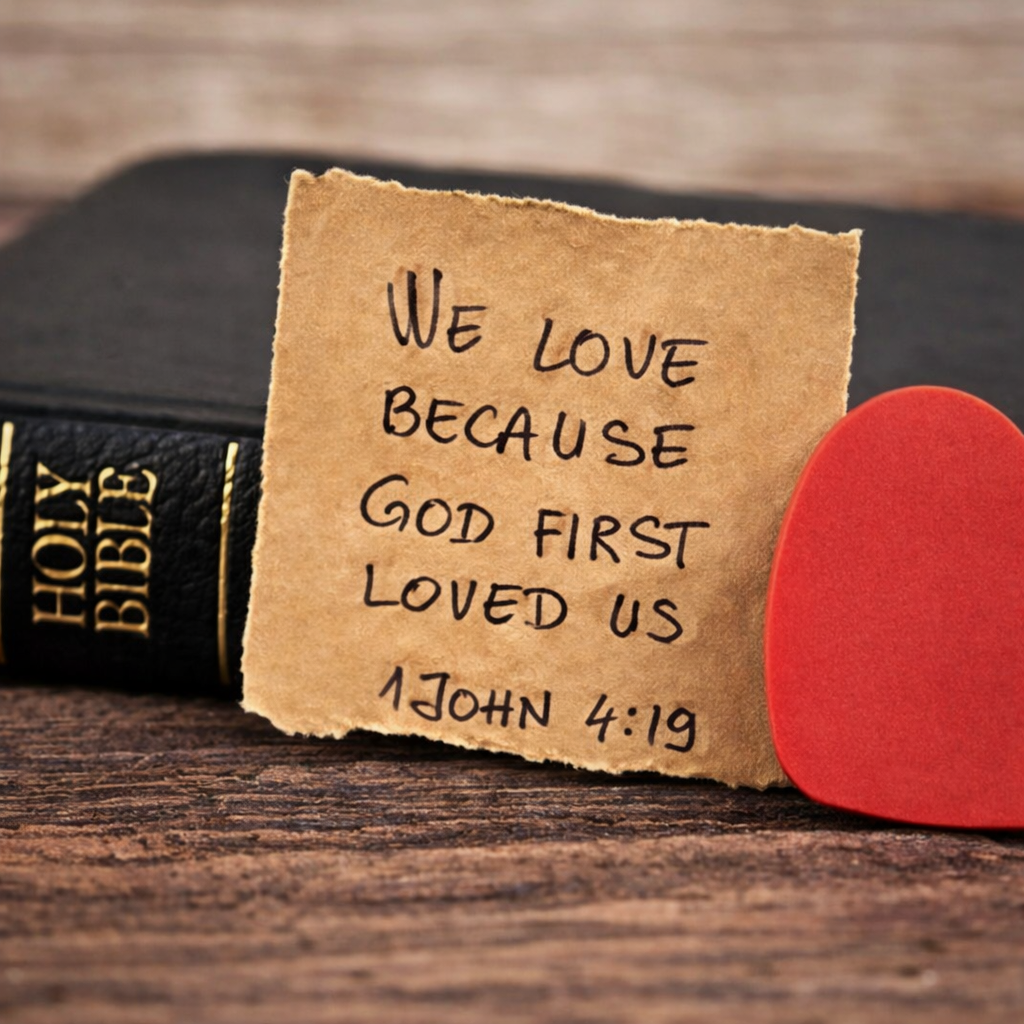 HOLY
BIBLE
WE LOVE
BECAUSE
GOD FIRST
LOVED US
1 JOHN 4:19